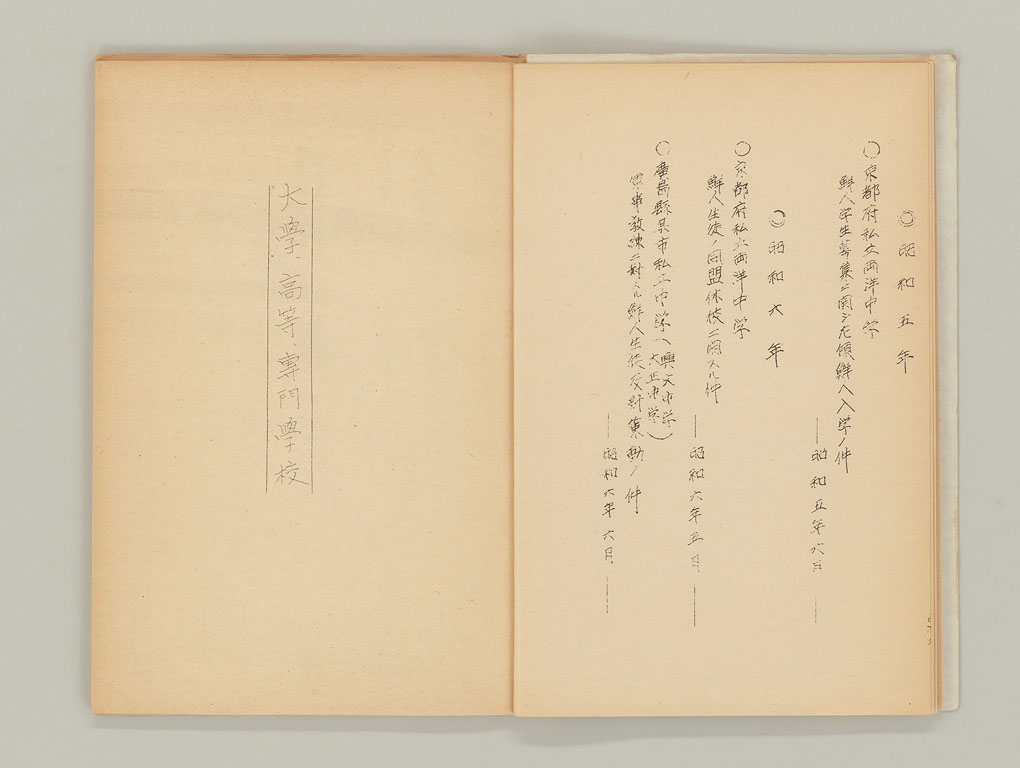 ◎昭和五年
○京都府私立両洋中学
鮮人学生募集ニ関シ在 鮮人入学ノ件
――昭和五年六月――
◎昭和六年
○京都府私立両洋中学
鮮人生徒ノ同盟休校ニ関スル件
――昭和六年五月――
○廣島縣呉市私立中学(興文中学
大正中学)
軍事教練ニ対スル鮮人生徒反対策動ノ件
――昭和六年六月――
大學、高等、專門學校